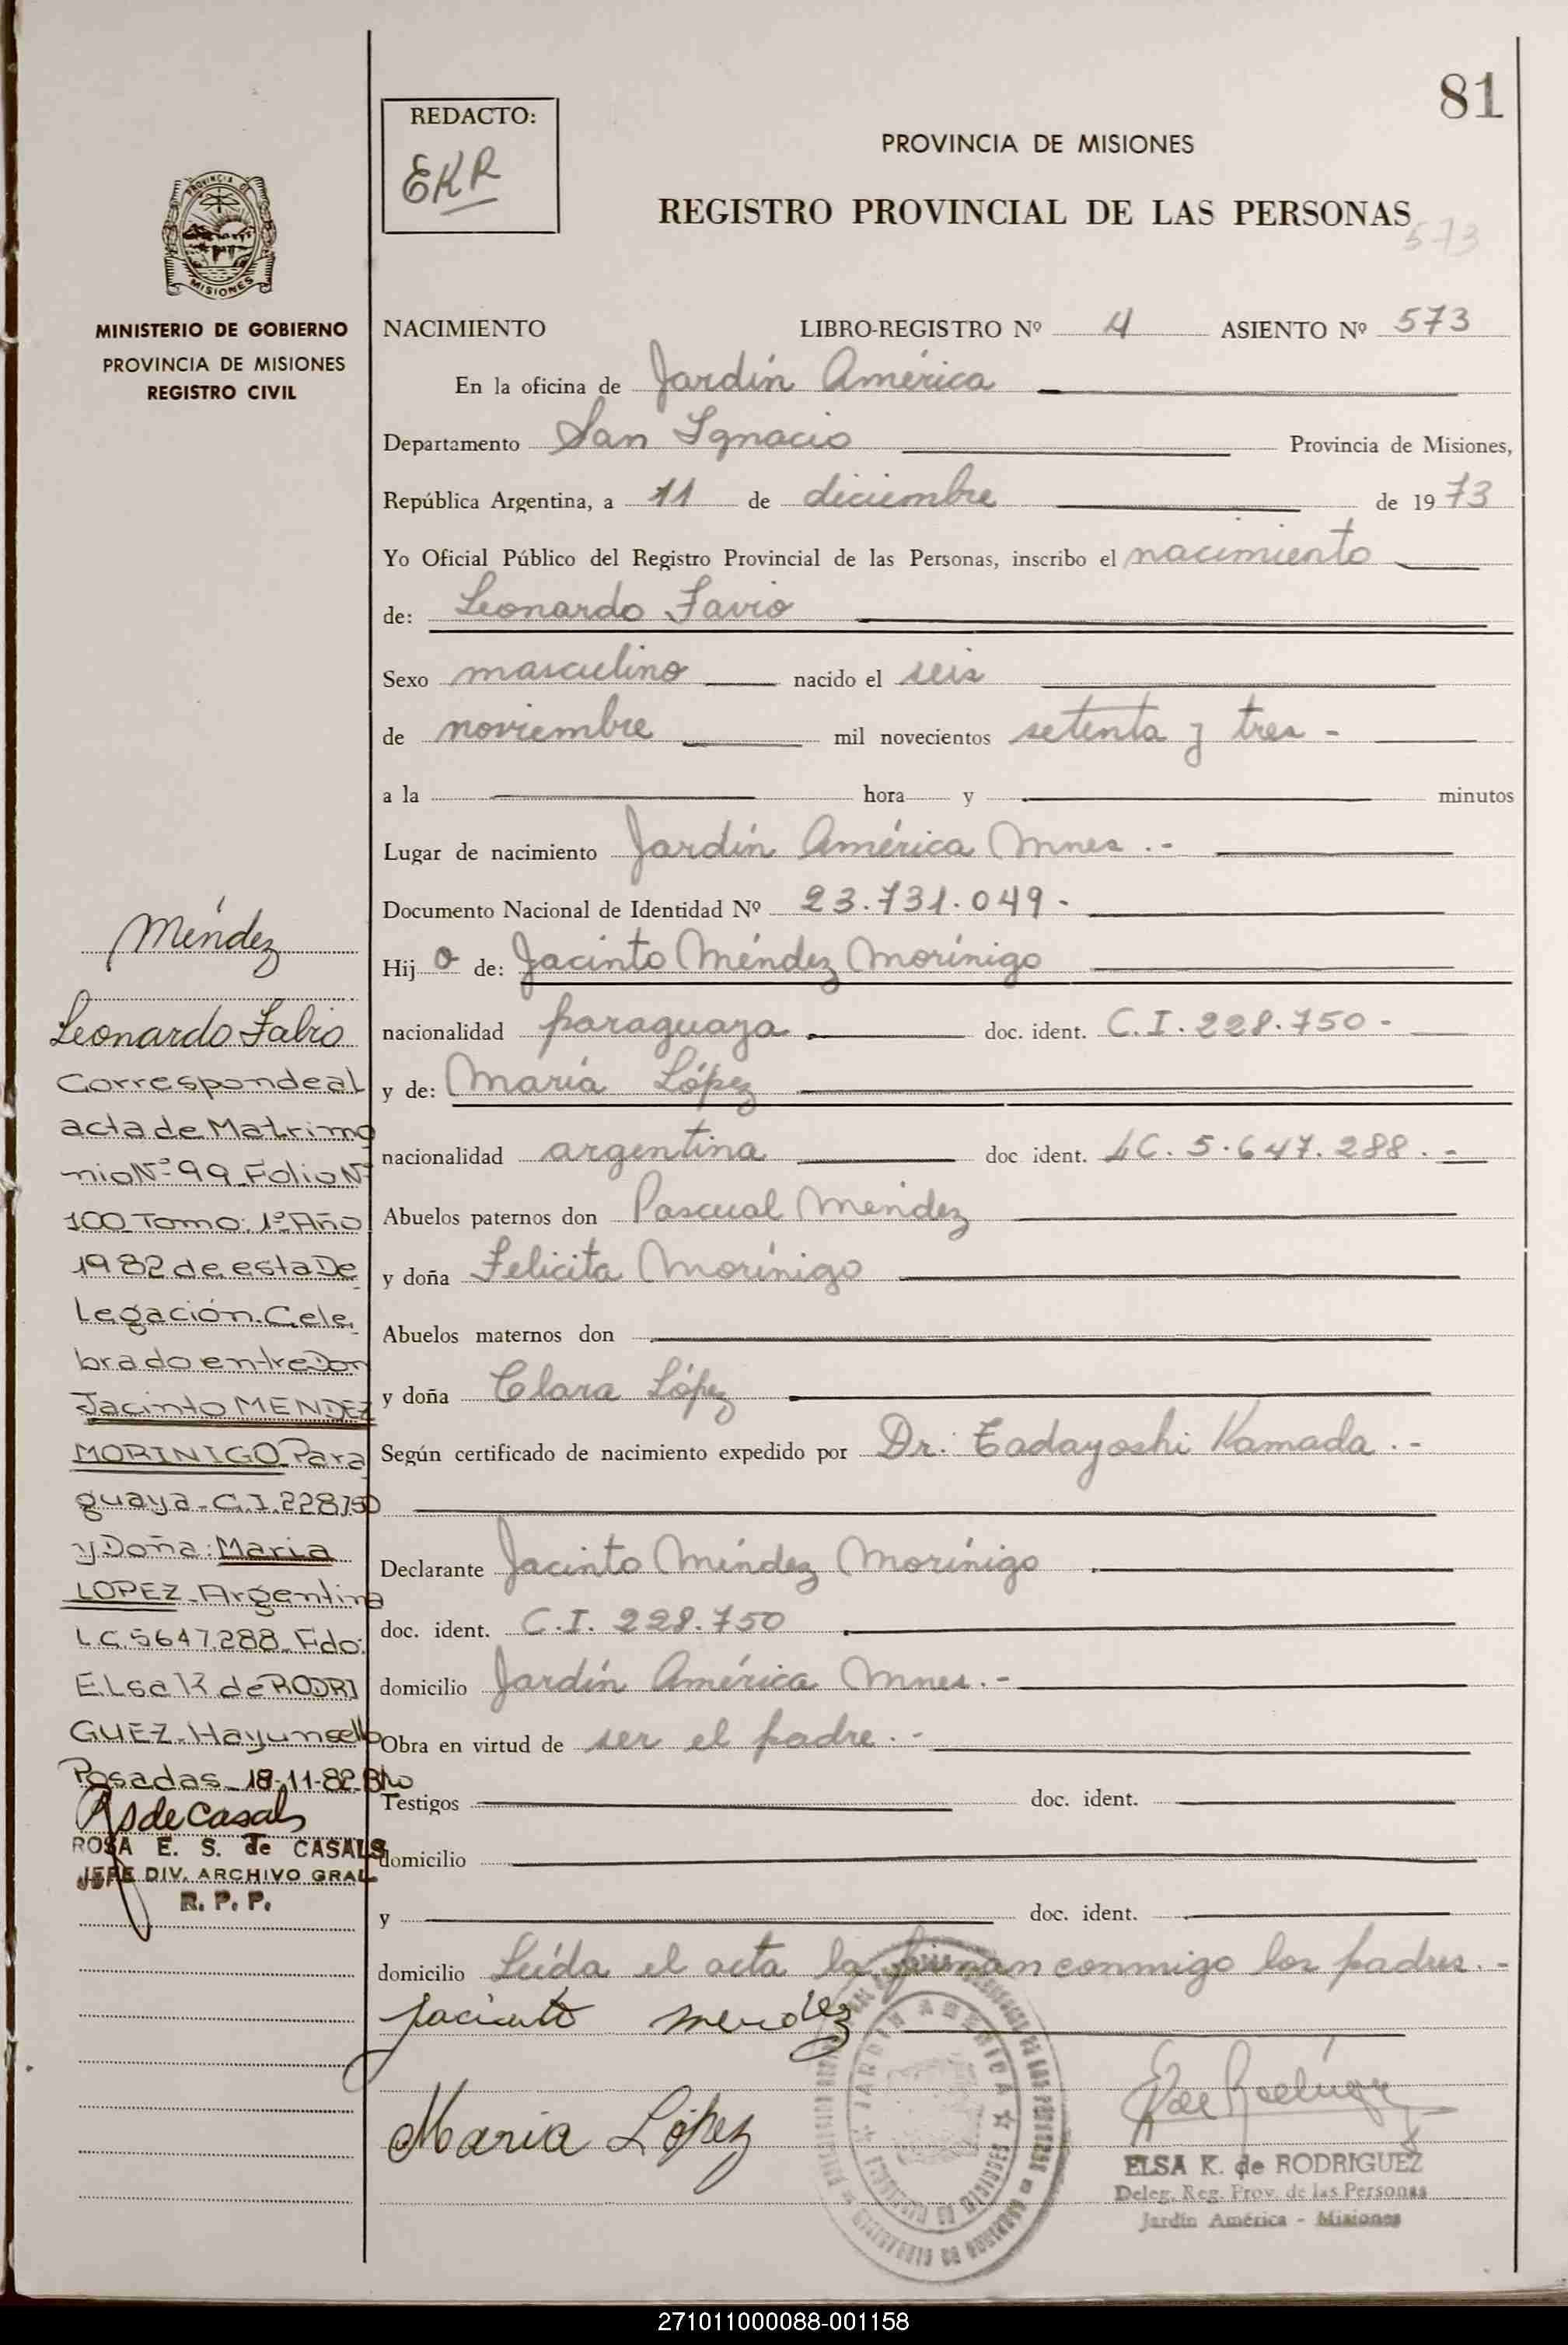 81
REDACTO:
EKR
PROVINCIA DE MISIONES
REGISTRO PROVINCIAL DE LAS PERSONAS
573
PROVINCIA DE
MISIONES
MINISTERIO DE GOBIERNO
PROVINCIA DE MISIONES
REGISTRO CIVIL
NACIMIENTO LIBRO-REGISTRO Nº 4 ASIENTO Nº 573
En la oficina de Jardín América
Departamento San Ignacio Provincia de Misiones,
República Argentina, a 11 de diciembre de 1973
Yo Oficial Público del Registro Provincial de las Personas, inscribo el nacimiento
de: Leonardo Favio
Sexo masculino nacido el seis
de noviembre mil novecientos setenta y tres -
a la hora y minutos
Lugar de nacimiento Jardín América Mnes .-
Documento Nacional de Identidad Nº 23.731.049 -
Hijo de: Jacinto Méndez Morínigo
nacionalidad paraguaya doc. ident. C.I. 228.750 -
y de: María López
nacionalidad argentina doc ident. LC. 5.647.288 . -
Abuelos paternos don Pascual Méndez
y doña Felicita Morínigo
Abuelos maternos don
y doña Clara López
Según certificado de nacimiento expedido por Dr. Tadayoshi Kamada .-
Declarante Jacinto Méndez Morínigo
doc. ident. C.I. 228.750
domicilio Jardín América Mnes. -
Obra en virtud de ser el padre . -
Testigos doc. ident.
domicilio
y doc. ident.
domicilio Leída el acta la firman conmigo los padres. -
Jacinto Mendez
Maria López
JARDIN AMERICA
ELSA K. de RODRIGUEZ
Deleg. Reg. Prov. de las Personas
Jardín América - Misiones
Méndez
Leonardo Fabio
Corresponde al
acta de Matrimo
nio Nº 99 Folio Nº
100 Tomo: 1º Año
1982 de esta De
Legación. Cele
brado entre Don
Jacinto MENDEZ
MORINIGO Para
guaya - C.I. 228750
y Doña: Maria
LOPEZ - Argentina
LC 5647.288 - Fdo:
ELsa K de RODRI
GUEZ - Hay un sello
Posadas 18-11-82
RS de Casals
ROSA E. S. de CASALS
JEFE DIV. ARCHIVO GRAL
R. P. P.
271011000088-001158